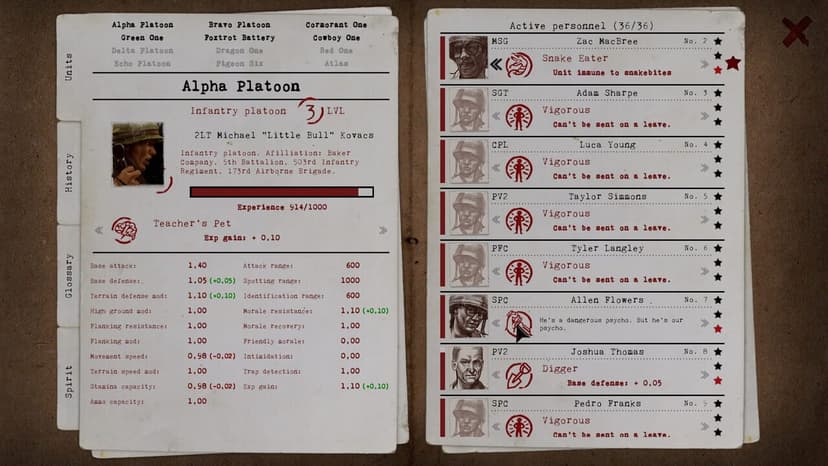 Alpha Platoon Bravo Platoon Cormorant One
Green One Foxtrot Battery Cowboy One
Delta Platoon Dragon One Red One
Echo Platoon Pigeon Six Atlas
Units
History
Glossary
Spirit
Alpha Platoon
Infantry platoon 3 LVL
2LT Michael "Little Bull" Kovacs
Infantry platoon. Afiliation: Baker
Company, 5th Battalion, 503rd Infantry
Regiment, 173rd Airborne Brigade.
Experience 914/1000
Teacher's Pet
Exp gain: + 0,10
Base attack: 1,40 Attack range: 600
Base defense: 1,05 (+0,05) Spotting range: 1000
Terrain defense mod: 1,10 (+0,10) Identification range: 600
High ground mod: 1,00 Morale resistance: 1,10 (+0,10)
Flanking resistance: 1,00 Morale recovery: 1,00
Flanking mod: 1,00 Friendly morale: 0,00
Movement speed: 0,98 (-0,02) Intimidation: 0,00
Terrain speed mod: 1,00 Trap detection: 1,00
Stamina capacity: 0,98 (-0,02) Exp gain: 1,10 (+0,10)
Ammo capacity: 1,00
Active personnel (36/36)
MSG Zac MacBree No. 2
Snake Eater
Unit immune to snakebites
SGT Adam Sharpe No. 3
Vigorous
Can't be sent on a leave.
CPL Luca Young No. 4
Vigorous
Can't be sent on a leave.
PV2 Taylor Simmons No. 5
Vigorous
Can't be sent on a leave.
PFC Tyler Langley No. 6
Vigorous
Can't be sent on a leave.
SPC Allen Flowers No. 7
He's a dangerous psycho. But he's our
psycho.
PV2 Joshua Thomas No. 8
Digger
Base defense: + 0,05
SPC Pedro Franks No. 9
Vigorous
Can't be sent on a leave.